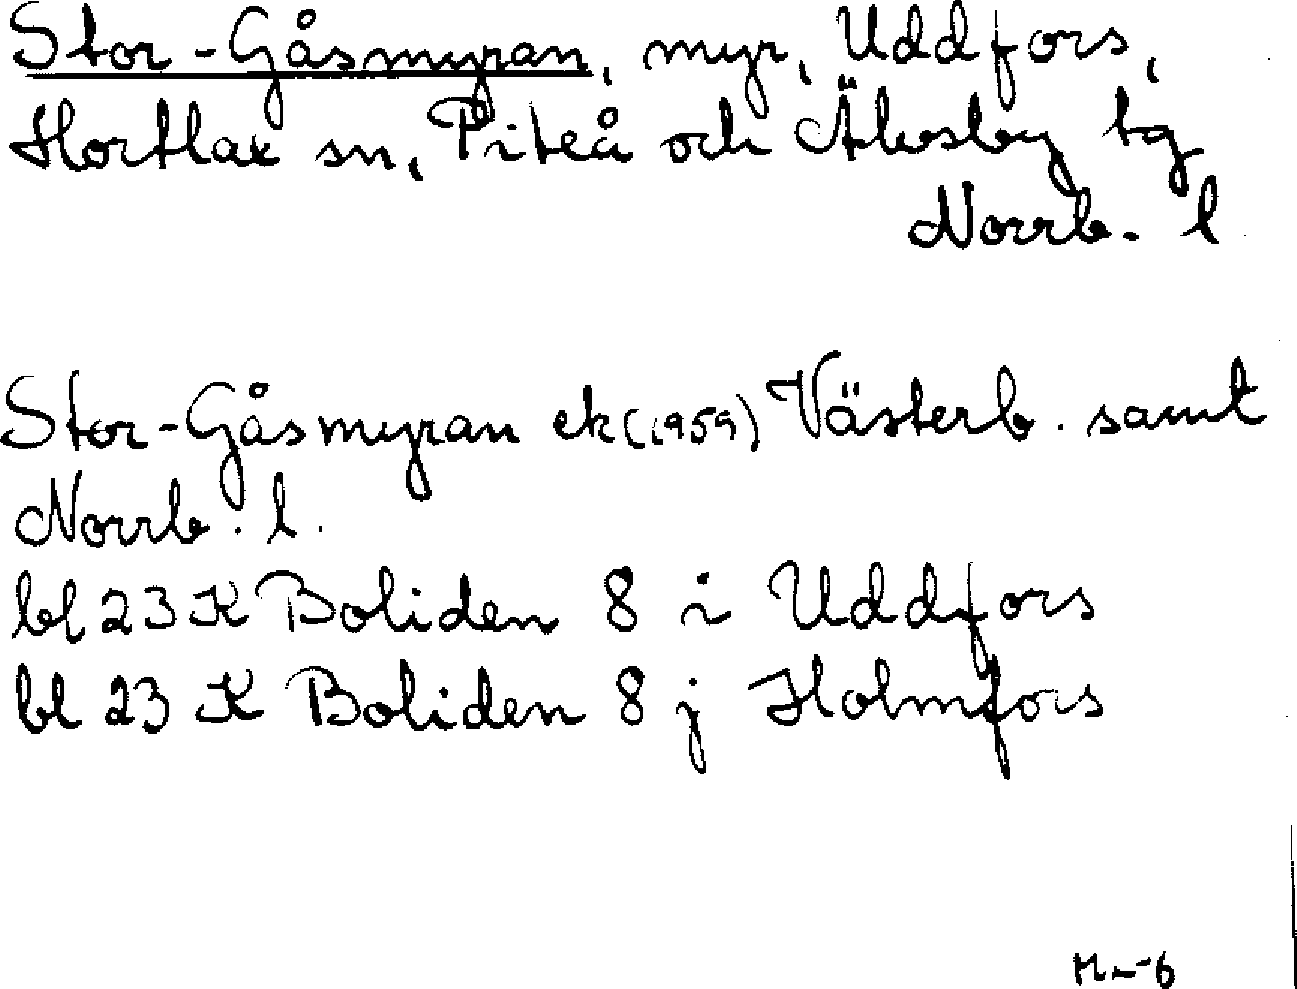 Stor-Gåsmyran, myr, Uddfors,
Hortlax sn, Piteå och Älvsby tg
Norrb. l
Stor-Gåsmyran ek (1959) Västerb. samt
Norrb. l.
bl 23 K Boliden 8 i Uddfors
bl 23 K Boliden 8 j Holmfors